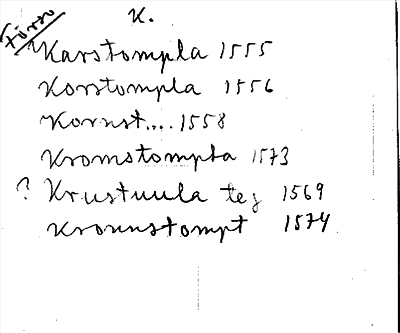 K.
Förso
Karstompla 1555
Korstompla 1556
Kornst.... 1558
Kromstompta 1573
? Krustuula tez 1569
Kronnstompt 1574